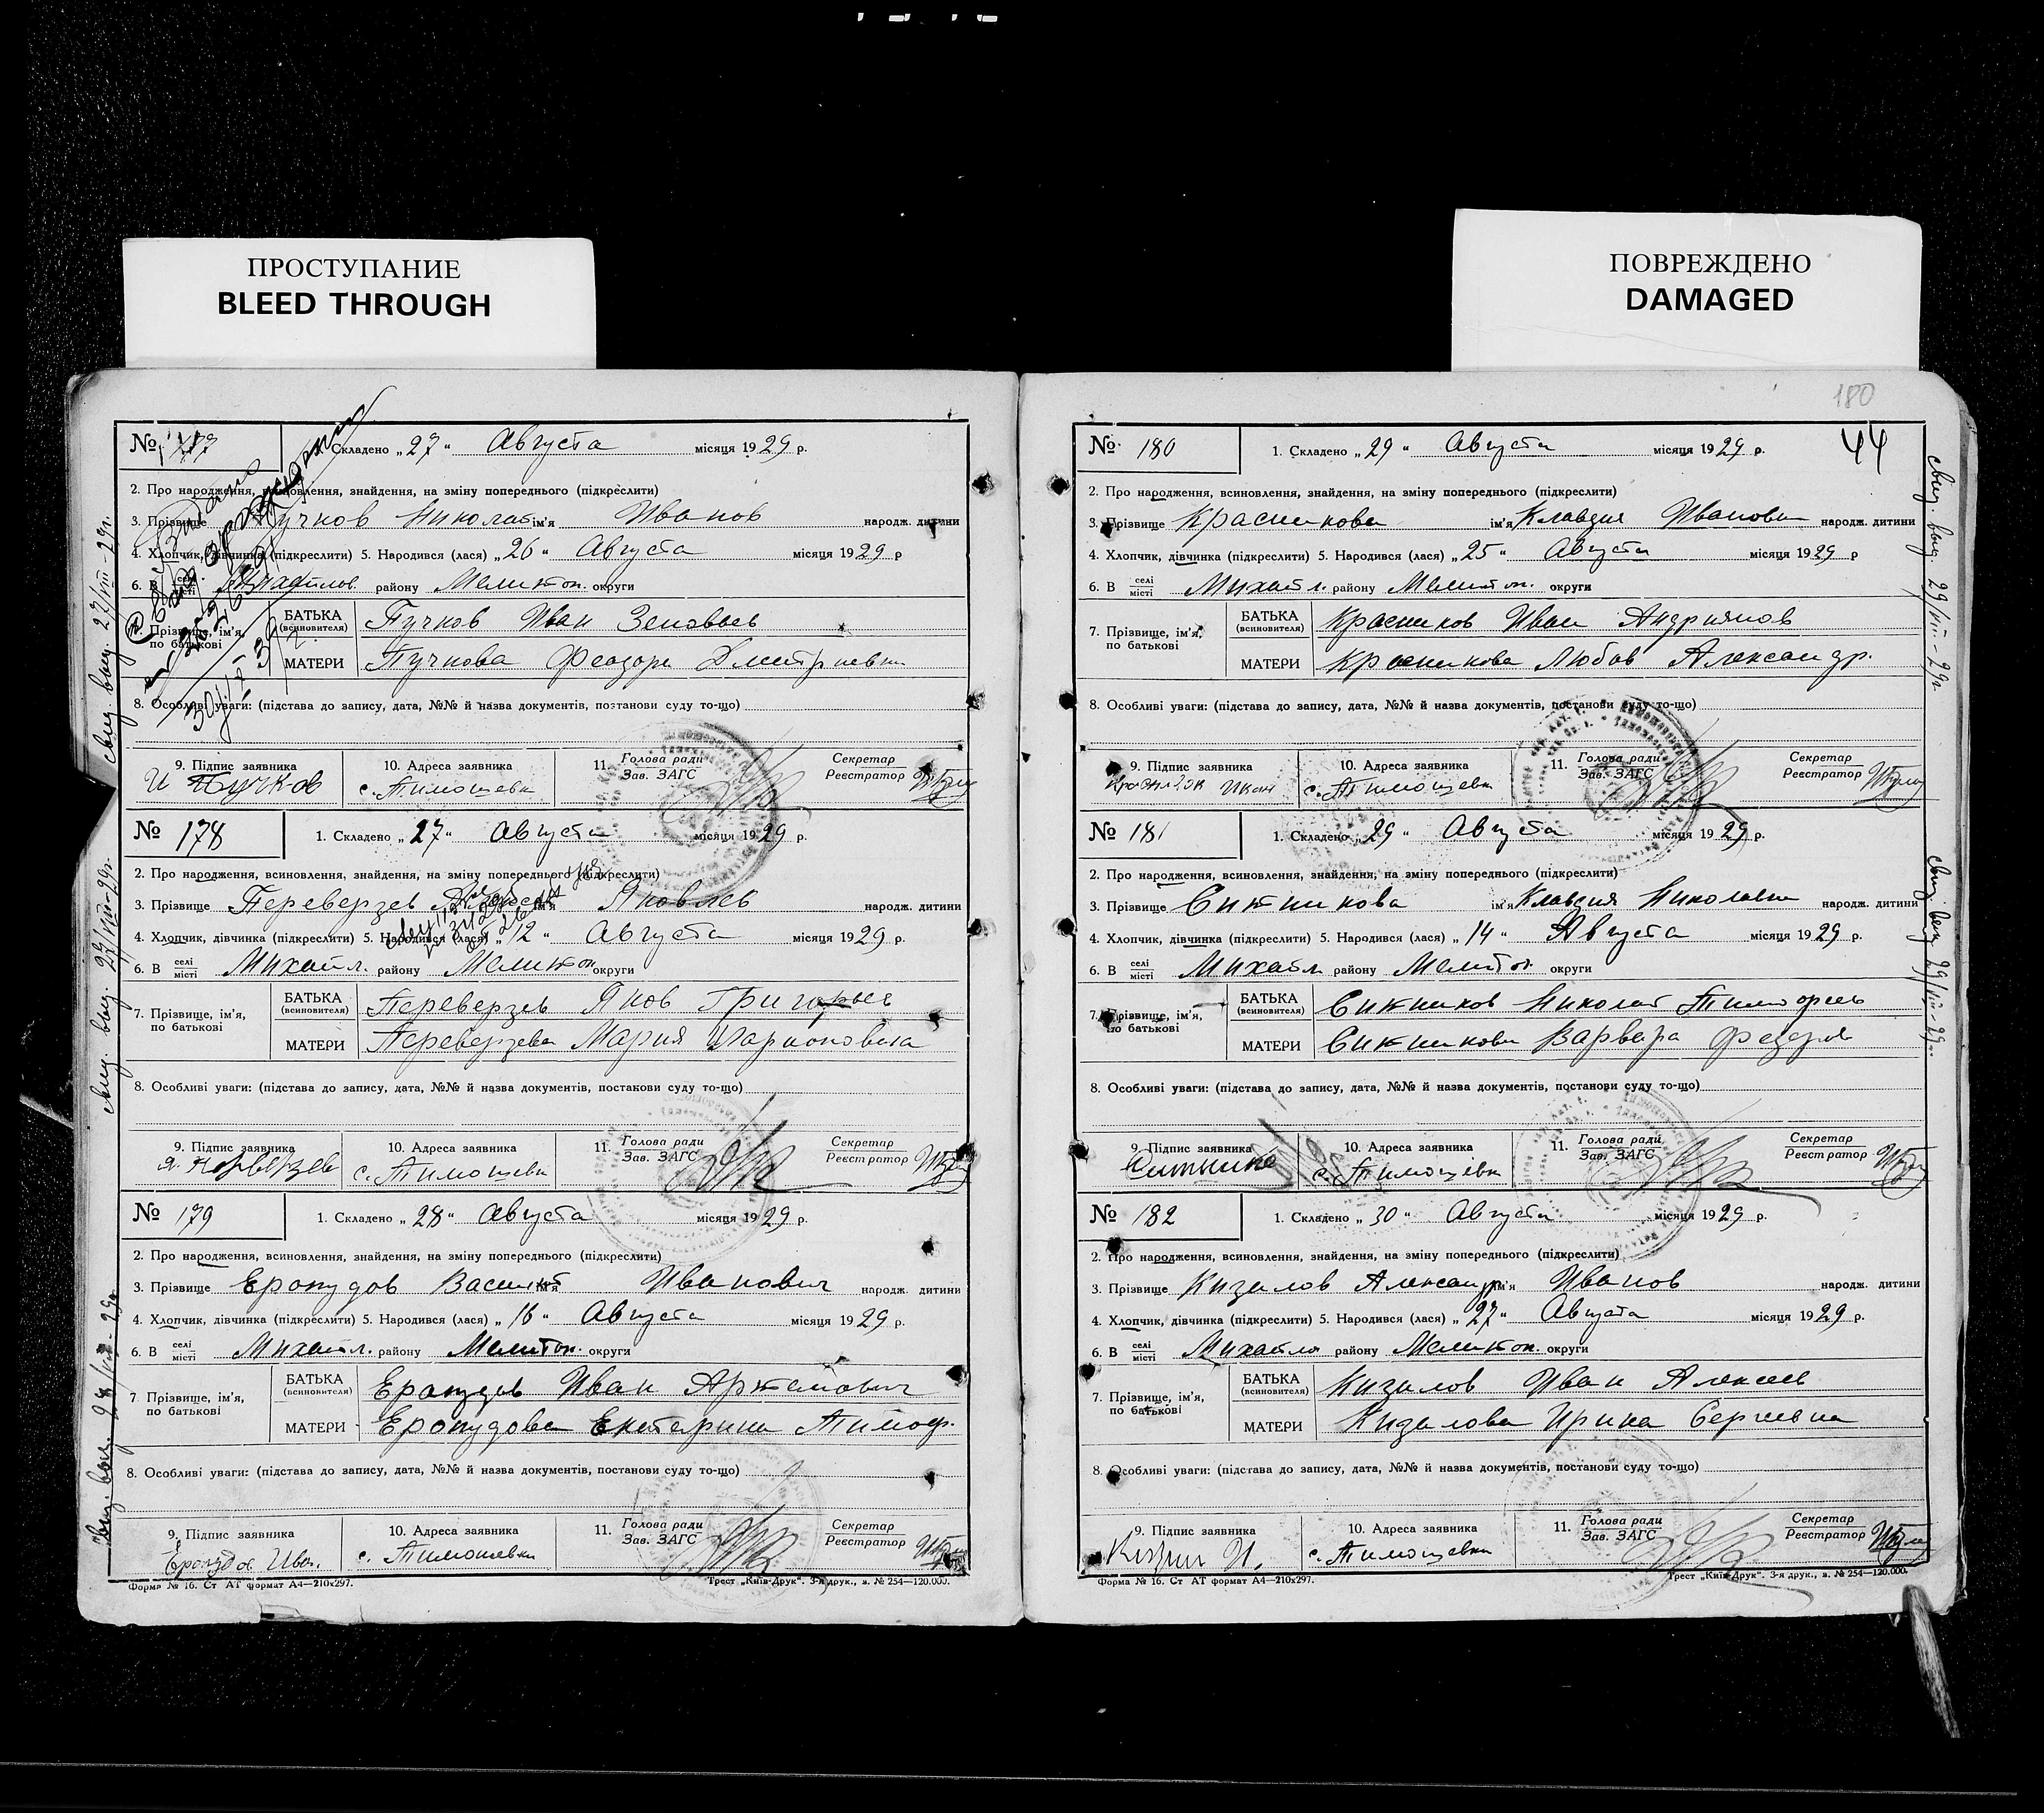 ПРОСТУПАНИЕ
BLEED THROUGH
ПОВРЕЖДЕНО
DAMAGED
№ 177 1. Складено „27“ Августа місяця 1929 р.
2. Про народження, всиновлення, знайдення, на зміну попереднього (підкреслити)
3. Прізвище Пучков Николай ім'я Иванов народж. дитини
4. Хлопчик, дівчинка (підкреслити) 5. Народився (лася) „26“ Августа місяця 1929 р
6. В селі місті Михайлов. району Мелитоп. округи
7. Прізвище, ім'я, по батькові
БАТЬКА (всиновителя) Пучков Иван Зеновьев
МАТЕРИ Пучкова Феодора Дмитриевна
8. Особливі уваги: (підстава до запису, дата, №№ й назва документів, постанови суду то-що)
9. Підпис заявника 10. Адреса заявника 11. Голова ради Зав. ЗАГС Секретар Реєстратор
И Пучков с. Тимошевка
Свид. выд. 27/VIII-29г.
№ 178 1. Складено „27“ Августа місяця 1929 р.
2. Про народження, всиновлення, знайдення, на зміну попереднього (підкреслити)
3. Прізвище Переверзев ім'я Яковлев народж. дитини
4. Хлопчик, дівчинка (підкреслити) 5. Народився (лася) „12“ Августа місяця 1929 р.
6. В селі місті Михайл. району Мелитоп округи
7. Прізвище, ім'я, по батькові
БАТЬКА (всиновителя) Переверзев Яков Григорьев
МАТЕРИ Переверзева Мария Ларионовна
8. Особливі уваги: (підстава до запису, дата, №№ й назва документів, постанови суду то-що)
9. Підпис заявника 10. Адреса заявника 11. Голова ради Зав. ЗАГС Секретар Реєстратор
с. Тимошевка
№ 179 1. Складено „28“ Августа місяця 1929 р.
2. Про народження, всиновлення, знайдення, на зміну попереднього (підкреслити)
3. Прізвище Еропудов Василий ім'я Иванович народж. дитини
4. Хлопчик, дівчинка (підкреслити) 5. Народився (лася) „16“ Августа місяця 1929 р.
6. В селі місті Михайл. району Мелитоп. округи
7 Прізвище, ім'я, по батькові
БАТЬКА (всиновителя) Еропудов Иван Артемович
МАТЕРИ Еропудова Екатерина Тимоф.
8. Особливі уваги: (підстава до запису, дата, №№ й назва документів, постанови суду то-що)
9. Підпис заявника 10. Адреса заявника 11. Голова ради Зав. ЗАГС Секретар Реєстратор
Еропудов Иван. с. Тимошевка
Форма № 16. Ст АТ формат А4—210х297. Трест „Київ-Друк“. 3-я друк., з. № 254—120.000.
180
44
№ 180 1. Складено „29“ Августа місяця 1929 р.
2. Про народження, всиновлення, знайдення, на зміну попереднього (підкреслити)
3. Прізвище Красникова ім'я Клавдия Ивановна народж. дитини
4. Хлопчик, дівчинка (підкреслити) 5. Народився (лася) „25“ Августа місяця 1929 р
6. В селі місті Михайл. району Мелитоп. округи
7. Прізвище, ім'я, по батькові
БАТЬКА (всиновителя) Красников Иван Андриянов
МАТЕРИ Красникова Любов Александр.
8. Особливі уваги: (підстава до запису, дата, №№ й назва документів, постанови суду то-що)
9. Підпис заявника 10. Адреса заявника 11. Голова ради Зав. ЗАГС Секретар Реєстратор
с. Тимошевка
Свид. выд. 29/VIII-29г.
№ 181 1. Складено „29“ Августа місяця 1929 р.
2. Про народження, всиновлення, знайдення, на зміну попереднього (підкреслити)
3. Прізвище Ситникова ім'я Клавдия Николаевна народж. дитини
4. Хлопчик, дівчинка (підкреслити) 5. Народився (лася) „14“ Августа місяця 1929 р.
6. В селі місті Михайл. району Мелитоп. округи
7. Прізвище, ім'я, по батькові
БАТЬКА (всиновителя) Ситников Николай Тимофеев
МАТЕРИ Ситникова Варвара Федоров
8. Особливі уваги: (підстава до запису, дата, №№ й назва документів, постанови суду то-що)
9. Підпис заявника 10. Адреса заявника 11. Голова ради Зав. ЗАГС Секретар Реєстратор
с. Тимошевка
№ 182 1. Складено „30“ Августа місяця 1929 р.
2. Про народження, всиновлення, знайдення, на зміну попереднього (підкреслити)
3. Прізвище Кизилов Александр ім'я Иванов народж. дитини
4. Хлопчик, дівчинка (підкреслити) 5. Народився (лася) „27“ Августа місяця 1929 р.
6. В селі місті Михайл. району Мелитоп. округи
7. Прізвище, ім'я, по батькові
БАТЬКА (всиновителя) Кизилов Иван Алексеев
МАТЕРИ Кизилова Ирина Сергиевна
8. Особливі уваги: (підстава до запису, дата, №№ й назва документів, постанови суду то-що)
9. Підпис заявника 10. Адреса заявника 11. Голова ради Зав. ЗАГС Секретар Реєстратор
с. Тимошевка
Форма № 16. Ст АТ формат А4—210х297. Трест „Київ-Друк“. 3-я друк., з. № 254—120.000.